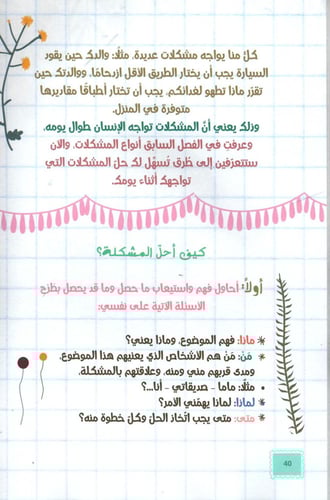 كلّ منا يواجه مشكلات عديدة، مثلًا: والدكِ حين يقود
السيارة يجب أن يختار الطريق الأقل ازدحامًا. ووالدتكِ حين
تقرّر ماذا تطهو لغدائكم، يجب أن تختار أطباقًا مقاديرها
متوفرة في المنزل.
وذلك يعني أنّ المشكلات تواجه الإنسان طوال يومه.
وعرفتِ في الفصل السابق أنواع المشكلات. والآن
ستتعرّفين إلى طُرق تُسهّل لكِ حلّ المشكلات التي
تواجهكِ أثناء يومكِ.
كيف أحلّ المشكلة؟
أولًا: أحاول فهم واستيعاب ما حصل وما قد يحصل بطرح
الأسئلة الآتية على نفسي:
ماذا: فهم الموضوع، وماذا يعني؟
مَنْ: مَنْ هم الأشخاص الذي يعنيهم هذا الموضوع،
ومدى قربهم مني ومنه، وعلاقتهم بالمشكلة.
• مثلًا: ماما - صديقاتي - أنا...؟
لماذا: لماذا يهمّني الأمر؟
متى: متى يجب اتّخاذ الحلّ وكلّ خطوة منه؟
40